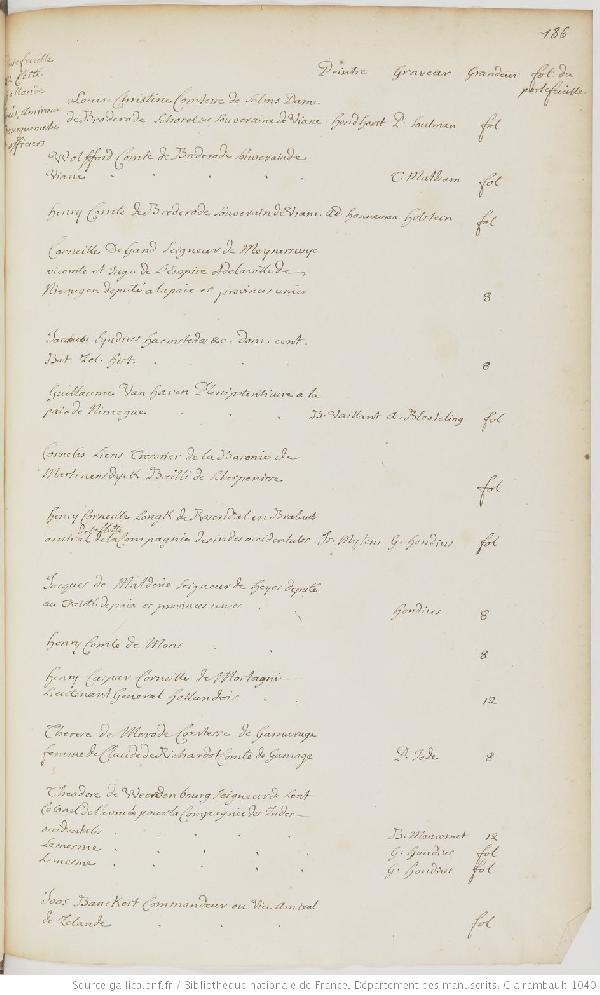 186
Peintre Graveur Grandeur fol. du
portefeuille
Louise Christine Comtesse de Solms Dame
de Brederode Souveraine de Viane Hondhorst P. Soutman fol
Wolfford Comte de Brderode Souverain de
Viane T. Matham fol
Henry Comte de Brederode Souverain de Viane Ad Hanneman Holstein fol
Corneille De Gand Seigneur de
vicomte et Juge de l'Empire de la ville de
Nimegen deputé a la paix es provinces unies 8
Jacobus Eyndius Haemsteda &c. Dom. cent.
Bat. Zel. Hist. 8
Guillaume Van Haren Plenipotentiaire a la
paix de Nimegue B. Vaillant A. Bloteling fol
Cornelis Liens Tresorier de la Baronie de
Martinensdyck Bailli de Scherpenisse fol
Henry Corneille Longk de Rosendal en Brabant
de flotte
amiral de la Compagnie des indes occidentales Is. Mytens G. Hondius fol
Jacques de Malderé Seigneur de Heyes deputé
au Traitté de paix es provinces unies Hondius 8
Henry Comte de Mons 8
Henry Casper Corneille de Mortagni
Lieutenant General Hollandois 12
Therese de Merode Comtesse de Gamerage
femme de Claude de Richardot Comte de Gamage P. Jode 8
Theodore de Weerdenbourg Seigneur de Lent
Colonel de l'armée pour la Compagnie des Indes
occidentales B. Moncornet 12
Le mesme G. Hondius fol
Le mesme G. Hondius fol
Joos Banckert Commandeur ou Vice Amiral
de Zelande fol
Source gallica.bnf.fr / Bibliothèque nationale de France. Département des manuscrits. Clairambault 1040